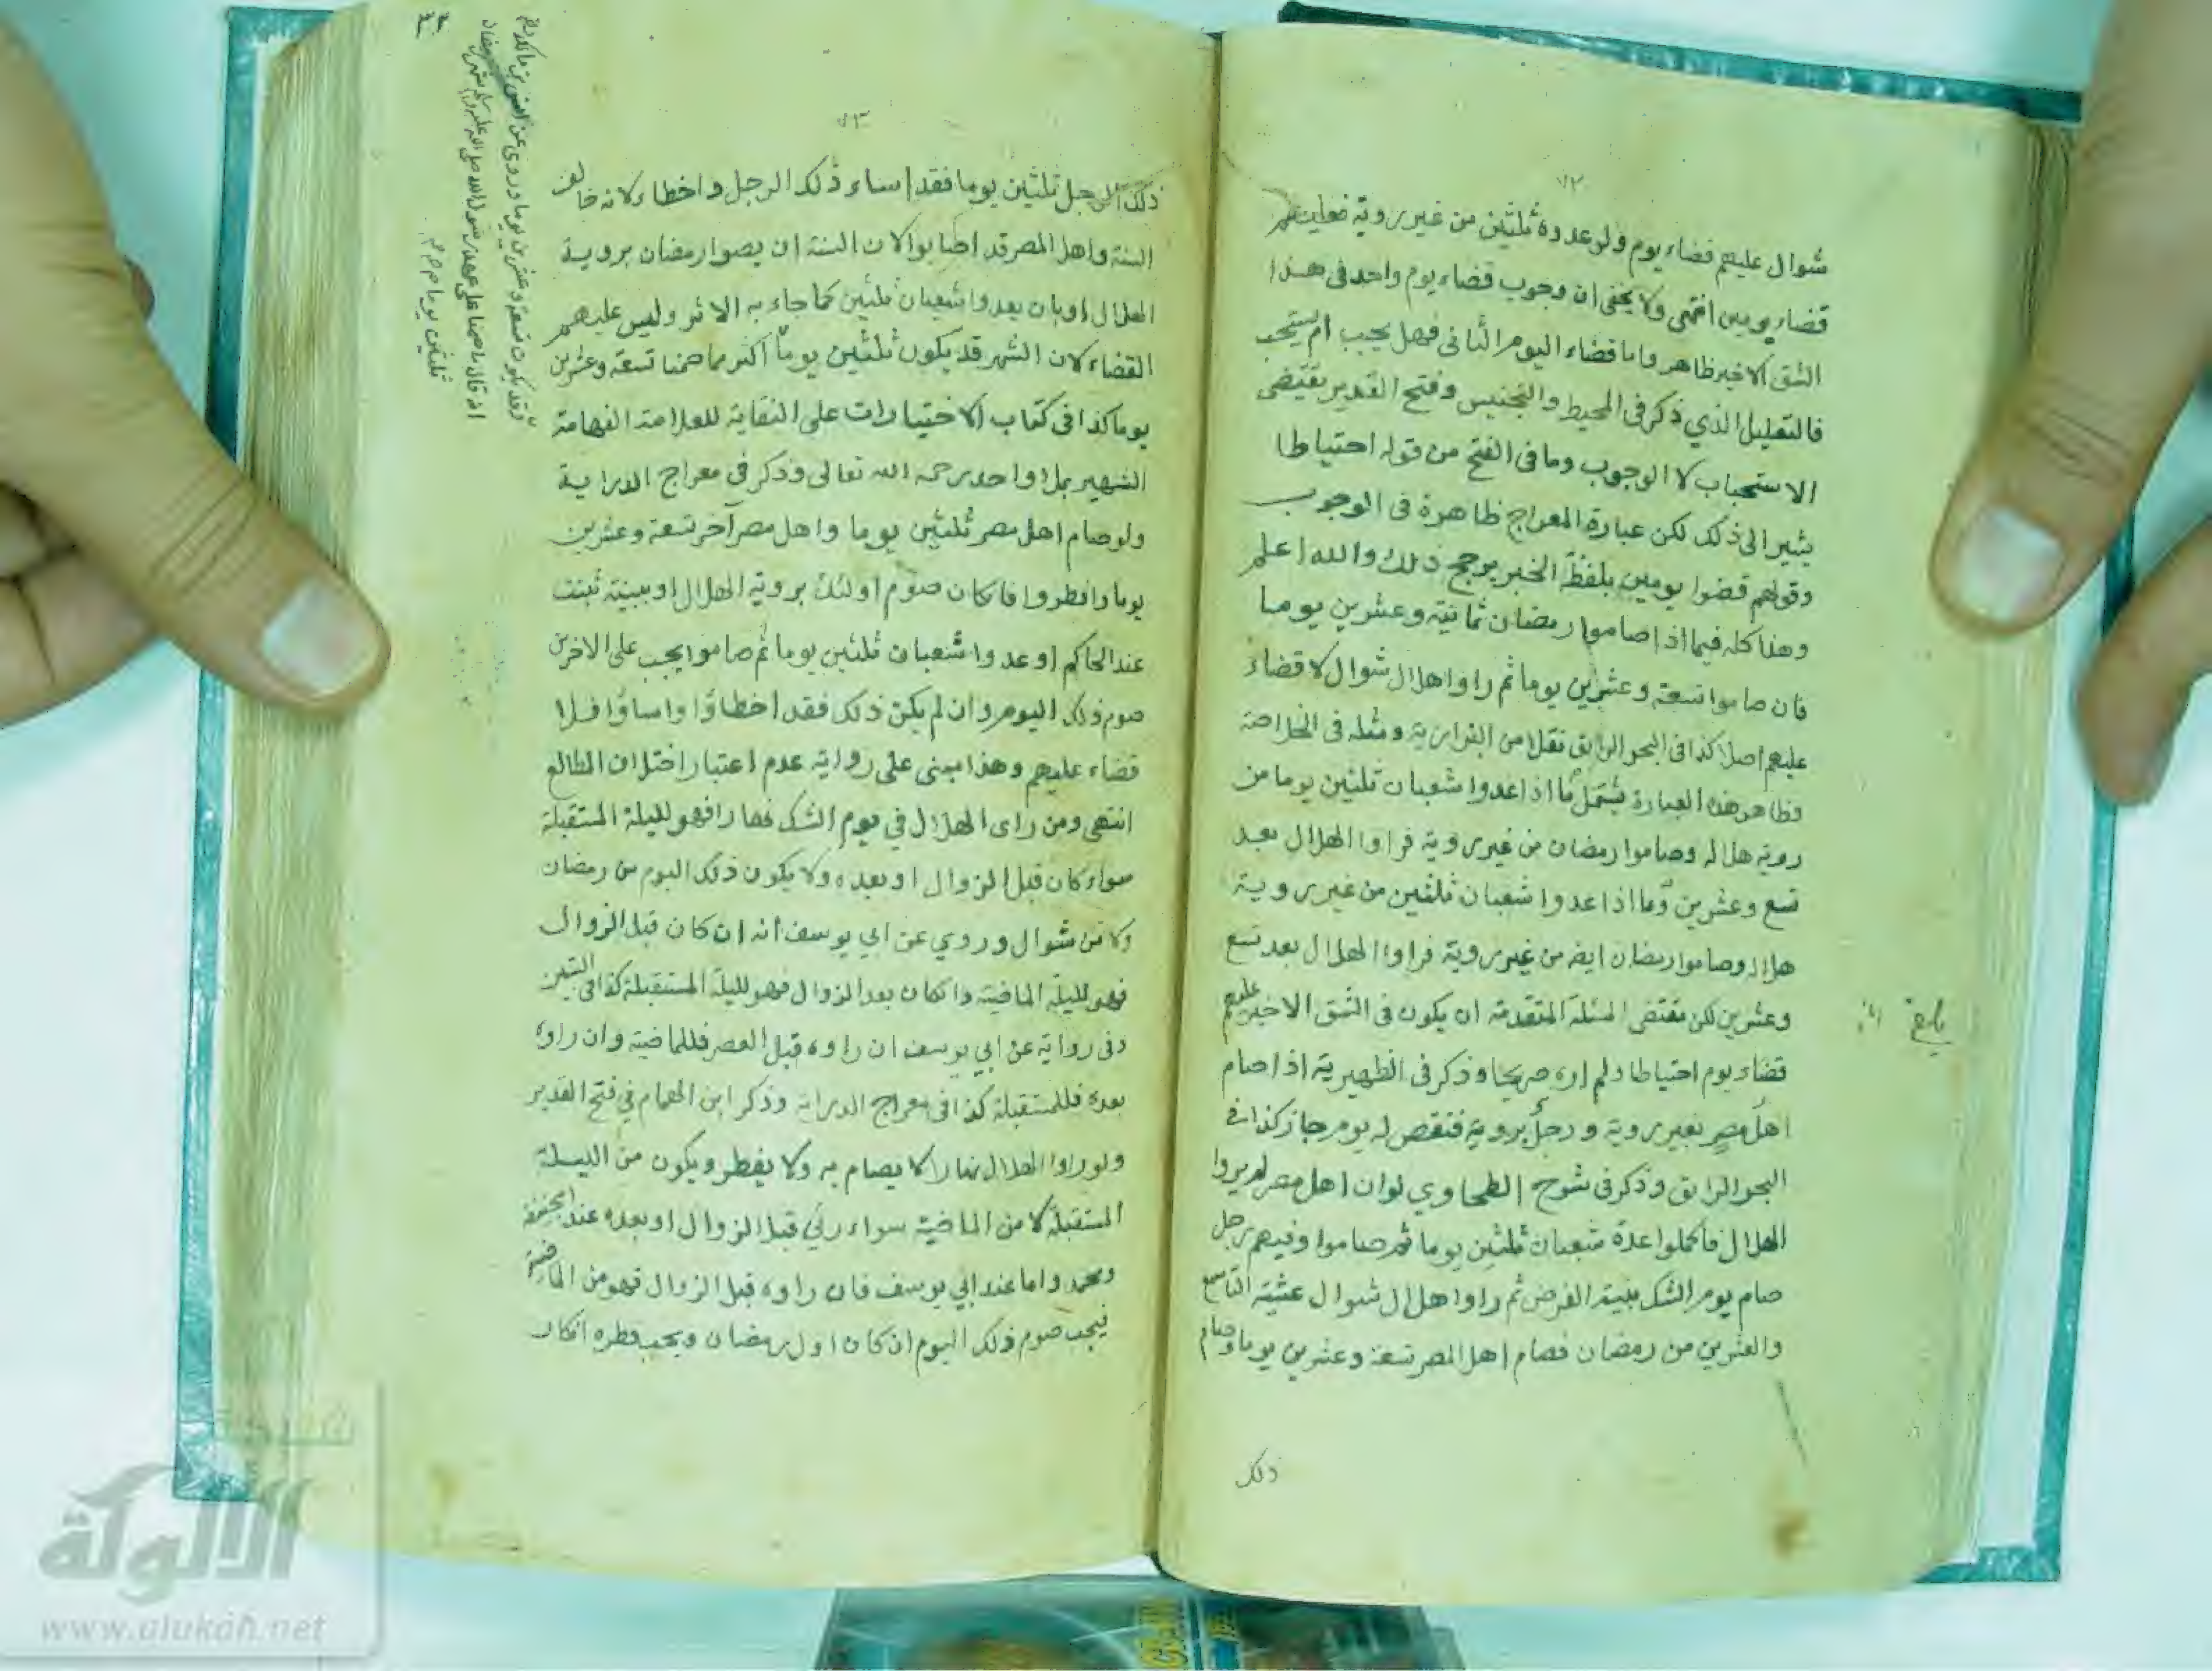 ٧٢
شوال عليهم قضاء يوم ولو عدوه ثلثين من غير روية فعليهم
قضاء يومين انتهى ولا يخفى ان وجوب قضاء يوم واحد فى هذا
الشق الاخير ظاهر واما قضاء اليوم الثانى فهل يجب ام يستحب
فالتعليل الذي ذكر فى المحيط والتجنيس وفتح القدير يقتضى
الاستحباب لا الوجوب وما فى الفتح من قوله احتياطا
يشير الى ذلك لكن عبارة المعراج ظاهرة فى الوجوب
وقولهم قضوا يومين بلفظ الخبر يرجح ذلك والله اعلم
وهذا كله فيما اذا صاموا رمضان ثمانية وعشرين يوما
فان صاموا تسعة وعشرين يوما ثم راوا هلال شوال لا قضاء
عليهم اصلا كذا فى البحر الرايق نقلا من البزازية ومثله فى الخلاصة
وظاهر هذه العبارة يشتمل ما اذا عدوا شعبان ثلثين يوما من
روية هلاله وصاموا رمضان من غير روية فراوا الهلال بعد
تسع وعشرين وما اذا عدوا شعبان ثلثين من غير روية
هلاله وصاموا رمضان ايضه من غير روية فراوا الهلال بعد تسع
وعشرين لكن مقتضى المسئلة المتقدمة ان يكون فى الشق الاخير عليهم
قضاء يوم احتياطا ولم اره صريحا وذكر فى الظهيرية اذا صام
اهل مصر بغير روية ورجل بروية فنقص له يوم جاز كذا فى
البحر الرايق وذكر فى شرح الطحاوي لو ان اهل مصر لم يروا
الهلال فاكملوا عدة شعبان ثلثين يوما ثم صاموا وفيهم رجل
صام يوم الشك بنية الفرض ثم راوا هلال شوال عشية التاسع
والعشرين من رمضان فصام اهل المصر تسعة وعشرين يوما وصام
ذلك
٧٣
ذلك الرجل ثلثين يوما فقد اساء ذلك الرجل واخطاء لانه خالف
السنة واهل المصر قد اصابوا لان السنة ان يصوا رمضان بروية
الهلال او بان يعدوا شعبان ثلثين كما جاء به الاثر وليس عليهم
القضاء لان الشهر قد يكون ثلثين يوما اكثر مما صمنا تسعة وعشرين
يوما كذا فى كتاب الاختيارات على النقاية للعلامة الفهامة
الشهير بملا واحد رحمه الله تعالى وذكر فى معراج الدراية
ولو صام اهل مصر ثلثين يوما واهل مصر آخر تسعة وعشرين
يوما وافطروا فان كان صوم اولئك بروية الهلال او ببينة ثبتت
عند الحاكم او عدوا شعبان ثلثين يوما ثم صاموا يجب على الاخرين
صوم ذلك اليوم وان لم يكن ذلك فقد اخطاؤا واساؤا فلا
قضاء عليهم وهذا مبنى على رواية عدم اعتبار اختلاف المطالع
انتهى ومن راى الهلال في يوم الشك نهارا فهو لليلة المستقبلة
سواء كان قبل الزوال او بعده ولا يكون ذلك اليوم من رمضان
ولا من شوال وروي عن ابي يوسف أنه ان كان قبل الزوال
فهو لليلة الماضية وان كان بعد الزوال فهو لليلة المستقبلة كذا فى التبيين
وفى رواية عن ابي يوسف ان راوه قبل العصر فللماضية وان راوه
بعده فللمستقبلة كذا فى معراج الدراية وذكر ابن الهمام في فتح القدير
ولو راوا الهلال نهارا لا يصام به ولا يفطر ويكون من الليلة
المستقبلة لا من الماضية سواء رئي قبل الزوال او بعده عند ابي حنيفة
ومحمد واما عند ابي يوسف فان راوه قبل الزوال فهو من الماضية
فيجب صوم ذلك اليوم ان كان اول رمضان ويجب فطره ان كان
وقد يكون تسعة وعشرين يوما وروى عن
اذ قال ما صمنا على عهد رسول الله صلى الله عليه وسلم
ثلثين يوما
الألوكة
www.alukah.net